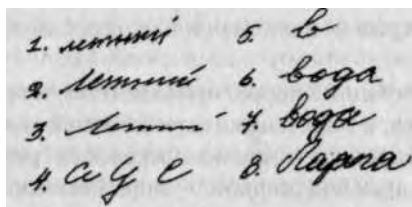 1. летний
2. летний
3. Летний
4. а у с
5. в
6. вода
7. вода
8. Марта